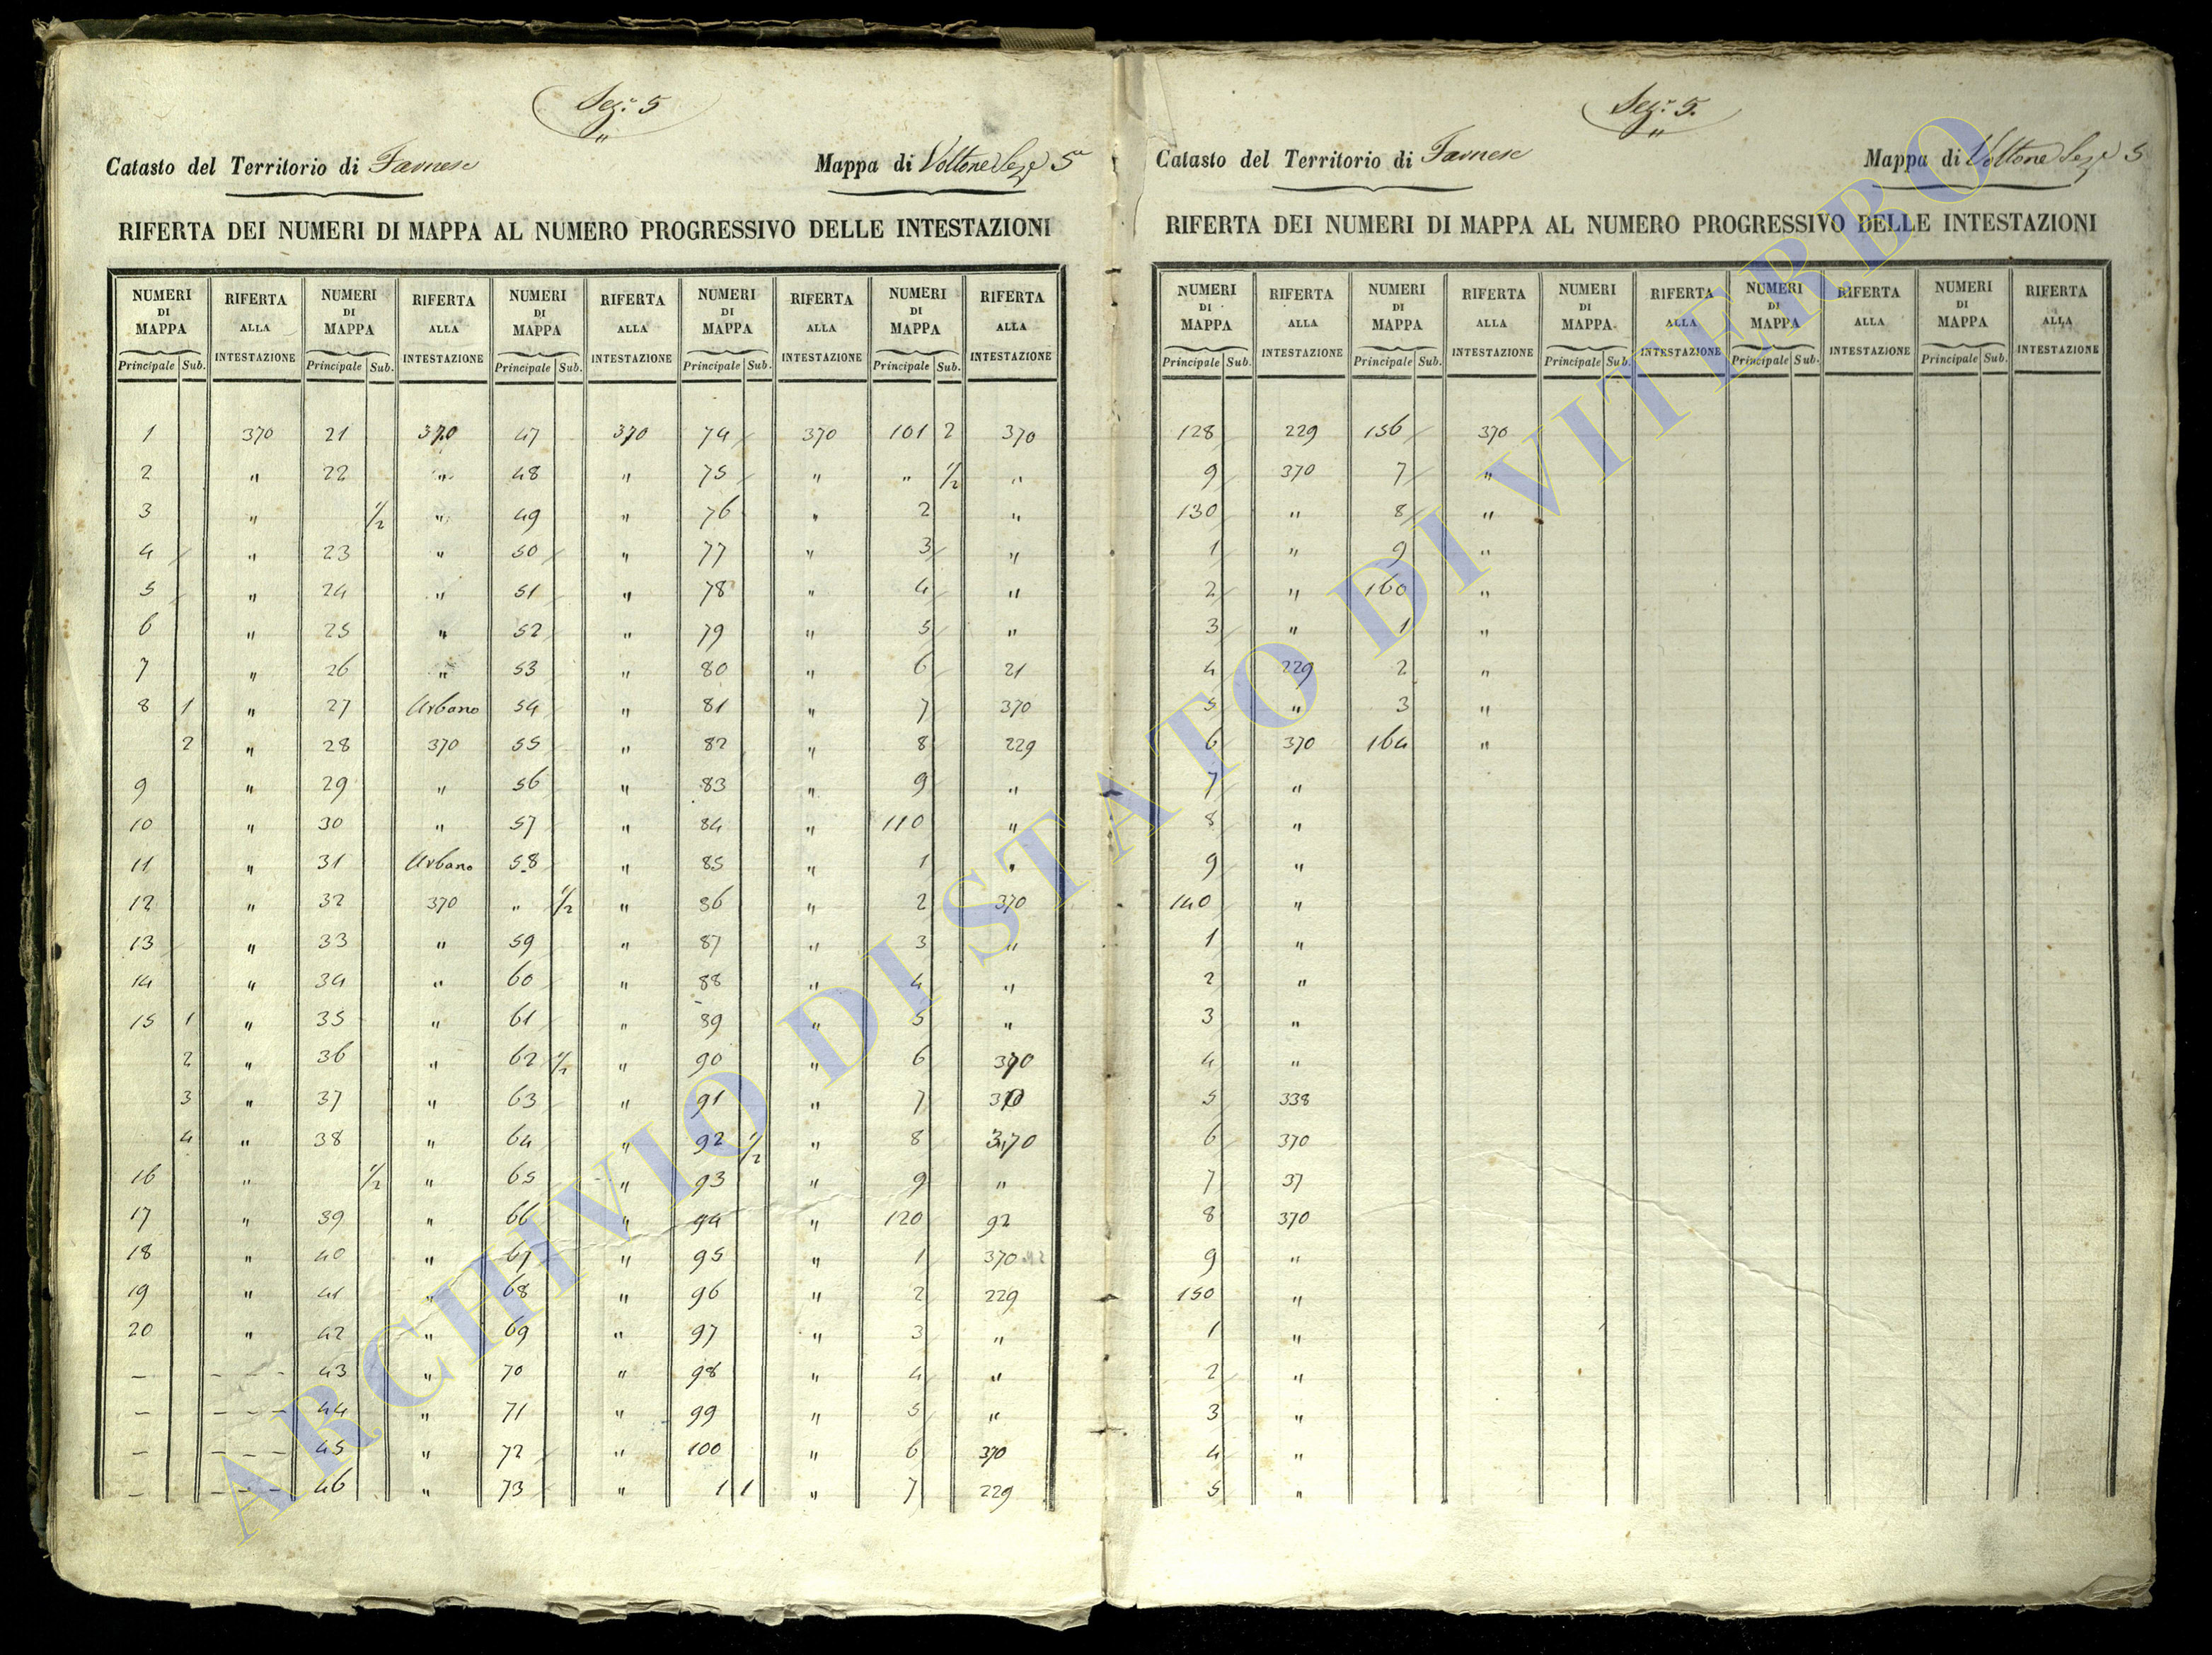 Sez.e 5
Catasto del Territorio di Farnese Mappa di Voltone Sez.e 5a
RIFERTA DEI NUMERI DI MAPPA AL NUMERO PROGRESSIVO DELLE INTESTAZIONI
NUMERI DI MAPPA RIFERTA ALLA INTESTAZIONE NUMERI DI MAPPA RIFERTA ALLA INTESTAZIONE NUMERI DI MAPPA RIFERTA ALLA INTESTAZIONE NUMERI DI MAPPA RIFERTA ALLA INTESTAZIONE NUMERI DI MAPPA RIFERTA ALLA INTESTAZIONE
Principale Sub. Principale Sub. Principale Sub. Principale Sub. Principale Sub.
1 370 21 370 47 370 74 370 101 2 370
2 " 22 " 48 " 75 " " 1/2 "
3 " 1/2 " 49 " 76 " 2 "
4 " 23 " 50 " 77 " 3 "
5 " 24 " 51 " 78 " 4 "
6 " 25 " 52 " 79 " 5 "
7 " 26 " 53 " 80 " 6 21
8 1 " 27 Urbano 54 " 81 " 7 370
2 " 28 370 55 " 82 " 8 229
9 " 29 " 56 " 83 " 9 "
10 " 30 " 57 " 84 " 110 "
11 " 31 Urbano 58 " 85 " 1 "
12 " 32 370 " 1/2 " 86 " 2 370
13 " 33 " 59 " 87 " 3 "
14 " 34 " 60 " 88 " 4 "
15 1 " 35 " 61 " 89 " 5 "
2 " 36 " 62 1/2 " 90 " 6 370
3 " 37 " 63 " 91 " 7 370
4 " 38 " 64 " 92 1/2 " 8 370
16 " 1/2 " 65 " 93 " 9 "
17 " 39 " 66 " 94 " 120 92
18 " 40 " 67 " 95 " 1 370
19 " 41 " 68 " 96 " 2 229
20 " 42 " 69 " 97 " 3 "
– – – – 43 " 70 " 98 " 4 "
– – – – 44 " 71 " 99 " 5 "
– – – – 45 " 72 " 100 " 6 370
– – – – 46 " 73 " 1 1 " 7 229
Sez.e 5.
Catasto del Territorio di Farnese Mappa di Voltone Sez.e 5
RIFERTA DEI NUMERI DI MAPPA AL NUMERO PROGRESSIVO DELLE INTESTAZIONI
NUMERI DI MAPPA RIFERTA ALLA INTESTAZIONE NUMERI DI MAPPA RIFERTA ALLA INTESTAZIONE NUMERI DI MAPPA RIFERTA ALLA INTESTAZIONE NUMERI DI MAPPA RIFERTA ALLA INTESTAZIONE NUMERI DI MAPPA RIFERTA ALLA INTESTAZIONE
Principale Sub. Principale Sub. Principale Sub. Principale Sub. Principale Sub.
128 229 156 370
9 370 7 "
130 " 8 "
1 " 9 "
2 " 160 "
3 " 1 "
4 229 2 "
5 " 3 "
6 370 164 "
7 "
8 "
9 "
140 "
1 "
2 "
3 "
4 "
5 338
6 370
7 37
8 370
9 "
150 "
1 "
2 "
3 "
4 "
5 "
ARCHIVIO DI STATO DI VITERBO